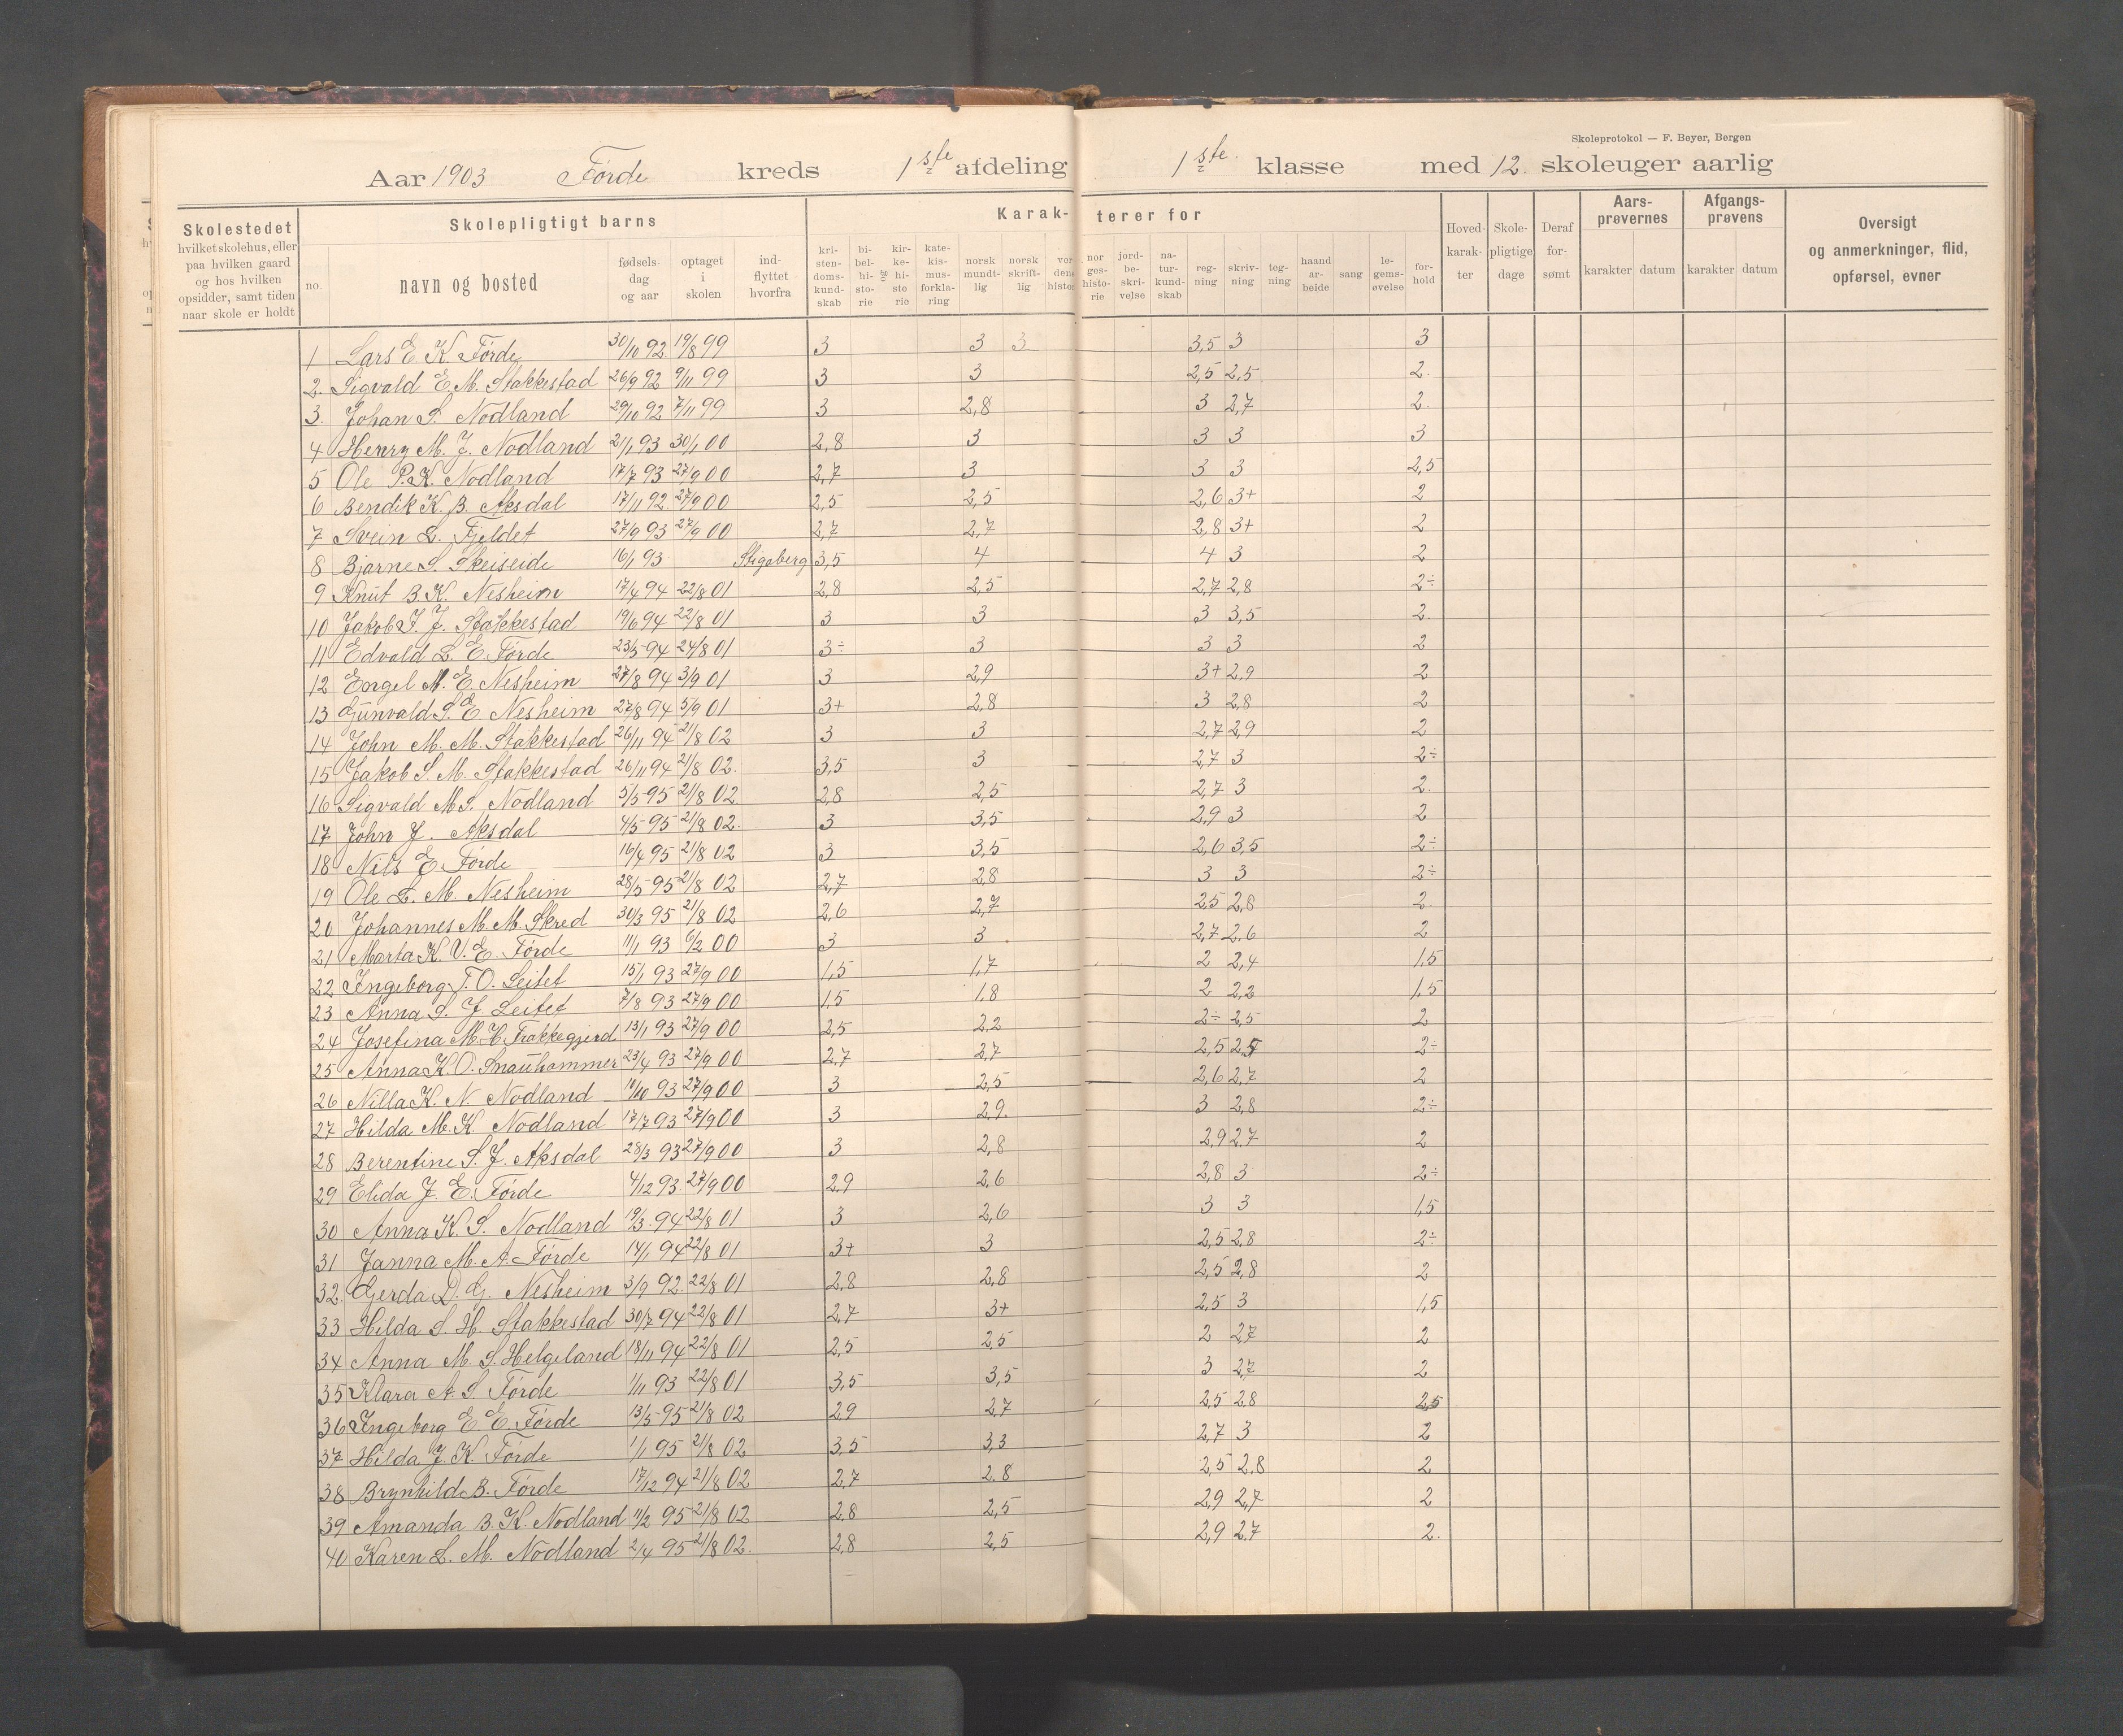 Skoleprotokol — F. Beyer, Bergen
Aar 1903 Førde kreds 1ste afdeling 1ste klasse med 12. skoleuger aarlig
Skolestedet hvilket skolehus, eller paa hvilken gaard og hos hvilken opsidder, samt tiden naar skole er holdt
Skolepligtigt barns
no. navn og bosted fødselsdag og aar optaget i skolen indflyttet hvorfra
Karakterer for
kristendomskundskab bibelhistorie kirkehistorie katekismusforklaring norsk mundtlig norsk skriftlig norgeshistorie jordbeskrivelse naturkundskab regning skrivning tegning haandarbeide sang legemsøvelse forhold
Hovedkarakter Skolepligtige dage Deraf forsømt
Aarsprøvernes karakter datum
Afgangsprøvens karakter datum
Oversigt og anmerkninger, flid, opførsel, evner
1 Lars E K. Førde 30/10 92 19/8 99 3 3 3 3,5 3 3
2. Sigvald E. M. Stakkestad 26/9 92 9/11 99 3 3 2,5 2,5 2.
3. Johan S. Nodland 29/10 92 7/11 99 3 2,8 3 2,7 2.
4 Henry M. J. Nodland 21/1 93 30/1 00 2,8 3 3 3 3
5 Ole P. K. Nodland 17/7 93 27/9 00 2,7 3 3 3 2,5
6 Bendik K. B. Aksdal 17/11 92 27/9 00 2,5 2,5 2,6 3+ 2
7 Svein L. Fjeldet 27/9 93 27/9 00 2,7 2,7 2,8 3+ 2
8 Bjarne S. Skeiseide 16/1 93 Stigaberg 3,5 4 4 3 2
9 Knut B. K. Nesheim 17/4 94 22/8 01 2,8 2,5 2,7 2,8 2÷
10 Jakob I. J. Stakkestad 19/6 94 22/8 01 3 3 3 3,5 2.
11 Edvald L. E. Førde 23/5 94 24/8 01 3÷ 3 3 3 2
12 Engel M. E. Nesheim 27/8 94 3/9 01 3 2,9 3+ 2,9 2
13 Gunvald S. E Nesheim 27/8 94 5/9 01 3+ 2,8 3 2,8 2
14 John M. M. Stakkestad 26/11 94 21/8 02 3 3 2,7 2,9 2
15 Jakob S. M. Stakkestad 26/11 94 21/8 02. 3,5 3 2,7 3 2÷
16 Sigvald M S. Nodland 5/5 95 21/8 02 2,8 2,5 2,7 3 2.
17 John J. Aksdal 4/5 95 21/8 02. 3 3,5 2,9 3 2
18 Nils E. Førde 16/4 95 21/8 02 3 3,5 2,6 3,5 2÷
19 Ole L. M. Nesheim 28/5 95 21/8 02 2,7 2,8 3 3 2÷
20 Johannes M. M. Skred 30/3 95 21/8 02 2,6 2,7 2,5 2,8 2
21 Marta K. V. E. Førde 11/1 93 6/2 00 3 3. 2,7 2,6 2
22 Ingeborg T. O. Leitet 15/1 93 27/9 00 1,5 1,7 2 2,4 1,5
23 Anna S. J. Leitet 7/8 93 27/9 00 1,5 1,8 2 2,2 1,5
24 Josefina M. H. Frakkegjerd 13/1 93 27/9 00 2,5 2,2 2÷ 2,5 2
25 Anna K. O. Snauhammer 23/4 93 27/9 00 2,7 2,7 2,5 2,5 2÷
26 Nilla K. N. Nodland 11/10 93 27/9 00 3 2,5 2,6 2,7 2
27 Hilda M. K. Nodland 17/7 93 27/9 00 3 2,9. 3 2,8 2÷
28 Berentine S. J. Aksdal 28/3 93 27/9 00 3 2,8 2,9 2,7 2
29 Elida J. E. Førde 4/12 93. 27/9 00 2,9 2,6 2,8 3 2÷
30 Anna K. S. Nodland 19/3 94 22/8 01 3 2,6 3 3 1,5
31 Janna M. A. Førde 14/1 94 22/8 01 3+ 3 2,5 2,8 2÷
32. Gerda D. G. Nesheim 3/9 92. 22/8 01 2,8 2,8 2,5 2,8 2
33 Hilda S. H. Stakkestad 30/7 94 22/8 01 2,7 3+ 2,5 3 1,5
34 Anna M. S. Helgeland 18/11 94 22/8 01 2,5 2,5 2 2,7 2
35 Klara A. S. Førde 1/11 93 22/8 01 3,5 3,5 3 2,7 2
36 Ingeborg E. E. Førde 13/5 95 21/8 02 2,9 2,7 2,5 2,8 2,5
37 Hilda J. K. Førde 1/1 95 21/8 02 3,5 3,3 2,7 3 2
38 Brynhilde B. Førde 17/12 94 21/8 02 2,7 2,8 2,5 2,8 2
39 Amanda B. K. Nodland 11/2 95 21/8 02 2,8 2,5 2,9 2,7 2
40 Karen L. M. Nodland 2/4 95 21/8 02. 2,8 2,5 2,9 2,7 2.